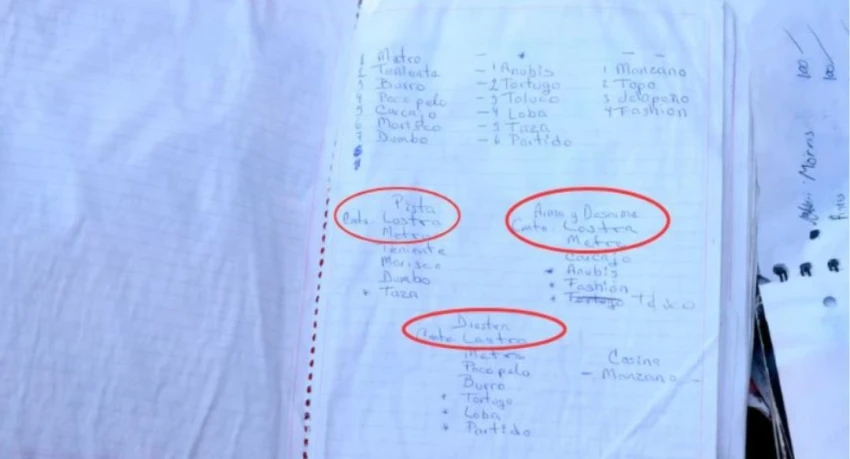 1 Metro
2 Teniente
3 Burro
4 Pocopelo
5 Carcajo
6 Morisco
7 Dumbo
8
- 1 Anubis
- 2 Tortugo
- 3 Toluco
- 4 Loba
- 5 Taza
- 6 Partido
1 Manzano
2 Topo
3 Jalapeño
4 Fashion
Pista
Cmte. Lastra
Metro
Teniente
Morisco
Dumbo
* Taza
Arme y Desarme
Cmte. Lastra
Metro
Carcajo
* Anubis
* Fashion
* Tortugo
Diestra
Cmte. Lastra
Metro
Pocopelo
Burro
* Tortugo
* Loba
* Partido
Cosina
- Manzano -
Morris 100
100